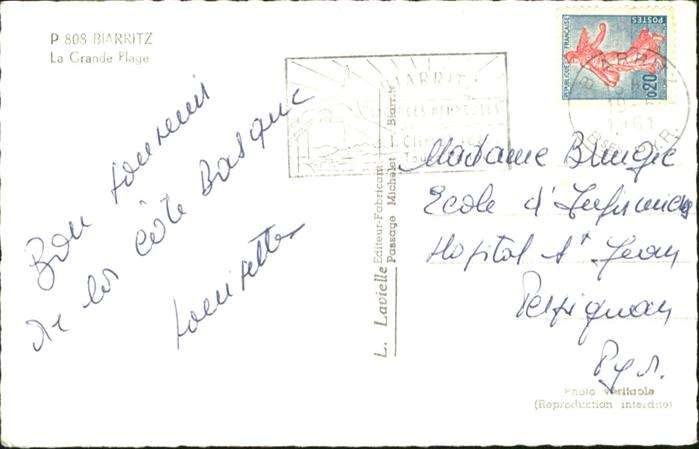 P 808 BIARRITZ
La Grande Plage
Bon souvenir
de la côte Basque
Louisette
L. Lavielle Editeur-Fabricant
Passage Michelet Biarritz
REPUBLIQUE FRANÇAISE
POSTES
0,20
BIARRITZ
1961
BIARRITZ
Madame
Ecole d'Infirmières
Hopital St Jean
Perpignan
Pyr.
Photo Véritable
(Reproduction interdite)